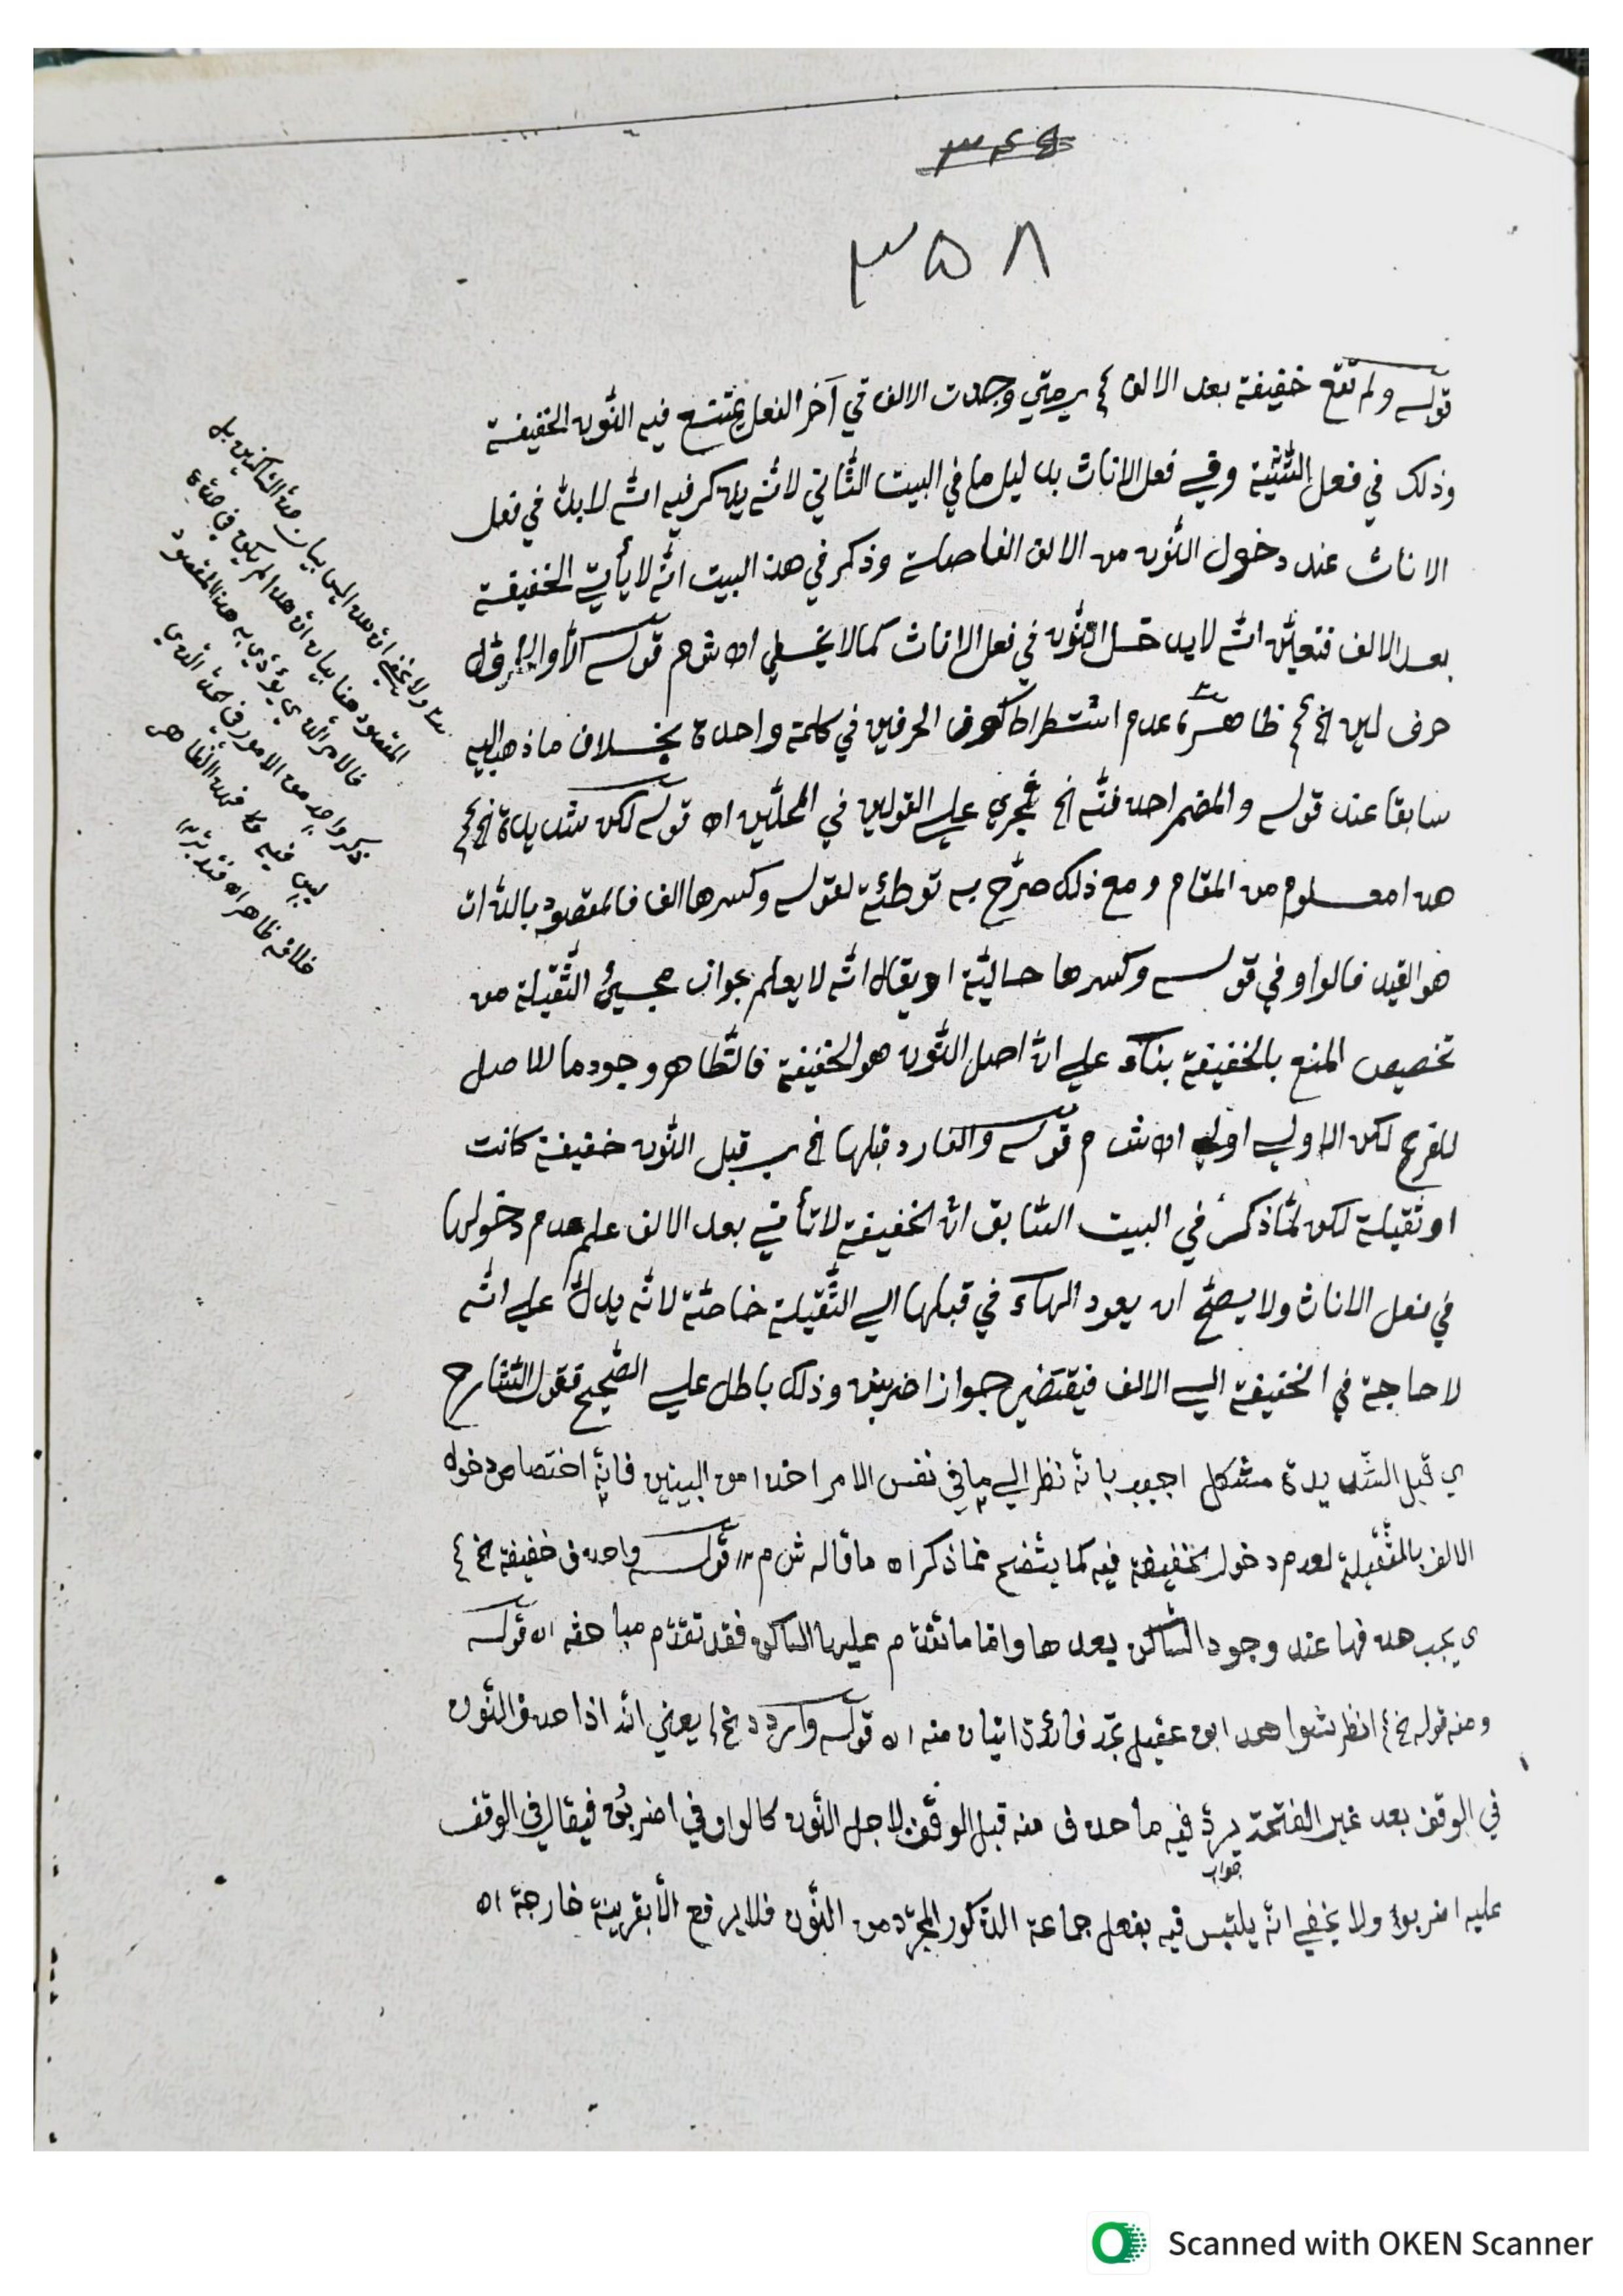 ٣٤٥
٣٥٨
قوله ولم تقع خفيفة بعد الالف وجدت الالف في آخر الفعل يمتنع فيه النّون الخفيفة
وذلك في فعل التّثنية وفي فعل الاناث بدليل ما في البيت الثّاني لانّه يذكر فيه انّه لابدّ في فعل
الاناث عند دخول النّون من الالف الفاصلة وذكر في هذ البيت انّه لا يأتي الخفيفة
بعد الالف فتعيّن انّه لا يدخل النّون في فعل الاناث كما لا يخفي اه ش م قوله الأوّل
حرف لين الخ ظاهره عدم اشتراط كون الحرفين في كلمة واحدة بخلاف ما ذهب اليه
سابقا عند قوله والمضمر احذفنّه الخ فجري علي القولين في المحلّين اه قوله لكن شديدة الخ
هذا معلوم من المقام ومع ذلك صرّح به توطئة لقوله وكسرها الف فالمقصود بالذّات
هو القيد فالواو في قوله وكسرها حاليّة او يقال انّه لا يعلم جواز مجيئ الثّقيلة من
تخصيص المنع بالخفيفة بناء علي انّ اصل النّون هو الخفيفة فالظّاهر وجود ما للاصل
للفرع لكن الاولي اولي اه ش م قوله والفا زد قبلها الخ ي قبل النّون خفيفة كانت
او ثقيلة لكن لمّا ذكر في البيت السّابق انّ الخفيفة لا تأتي بعد الالف علم عدم دخولها
في فعل الاناث ولا يصحّ ان يعود الهاء في قبلها الي الثّقيلة خاصّة لانّه يدلّ علي انّه
لا حاجة في الخفيفة الي الالف فيقتضي جواز اضربنن وذلك باطل علي الصّحيح فقول الشّارح
ي قبل الشّديدة مشكل اجيب بانّه نظر الي ما في نفس الامر اخذا من البيتين فانّه اختصاص دخول
الالف بالمثقيلة لعدم دخول الخفيفة فيه كما يتّضح ممّا ذكر اه ما قاله ش م قوله واحذف خفيفة الخ
ي يجب حذفها عند وجود السّاكن بعدها وامّا ما تقدّم عليها الساكن فقد تقدّم مباحثه اه قوله
ومنه قوله الخ انظر شواهد ابن عقيل تجد فائدة اتيان منه اه قوله واردد الخ يعني انّه اذا حذف النّون
في الوقف بعد غير الفتحة يردّ فيه ما حذف منه قبل الوقف لاجل النّون كالواو في اضربن فيقال في الوقف
جواب
عليه اضربوا ولا يخفي انّه يلتبس فيه بفعل جماعة الذّكور المجرّد من النّون فلا يرفع الّا بقرينة خارجة اه
ولا يخفي انّ هذ ليس بيان حدّ السّاكنين بل
المقصود هنا بيان انّ هذ الم يكن في حدّه
فالامر الّذي يؤدّي به هذا المقصود
ذكر واحد من الامور في الحدّ الّذي
ليس فيه
خلافه ظاهر اه فتدبّر
Scanned with OKEN Scanner